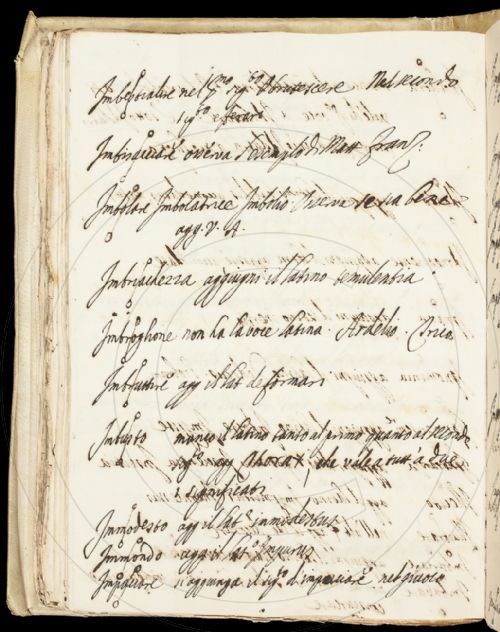 Imbestialire nel p.mo sig.to Obrutescere Nel secondo
sig.to efferari
Imbisacciare osserva l'esempio di Matt. Franz.
Imbolare Imbolatrice Imbolio osserva se sia bene
agg. v. A.
Imbriachezza aggiugni il latino temulentia
Imbroglione non ha la voce latina. Ardelio.
Imbruttire agg. il lat. deformari
Imbusto manca il latino tanto al primo quanto al secondo
sig.to agg. thorax, che vale a tutti e due
i significati
Immodesto agg. il lat. immodestus
Immondo agg. il lat. impurus
Impacciare si aggiunga il sig.to d'impacciare nel giuoco